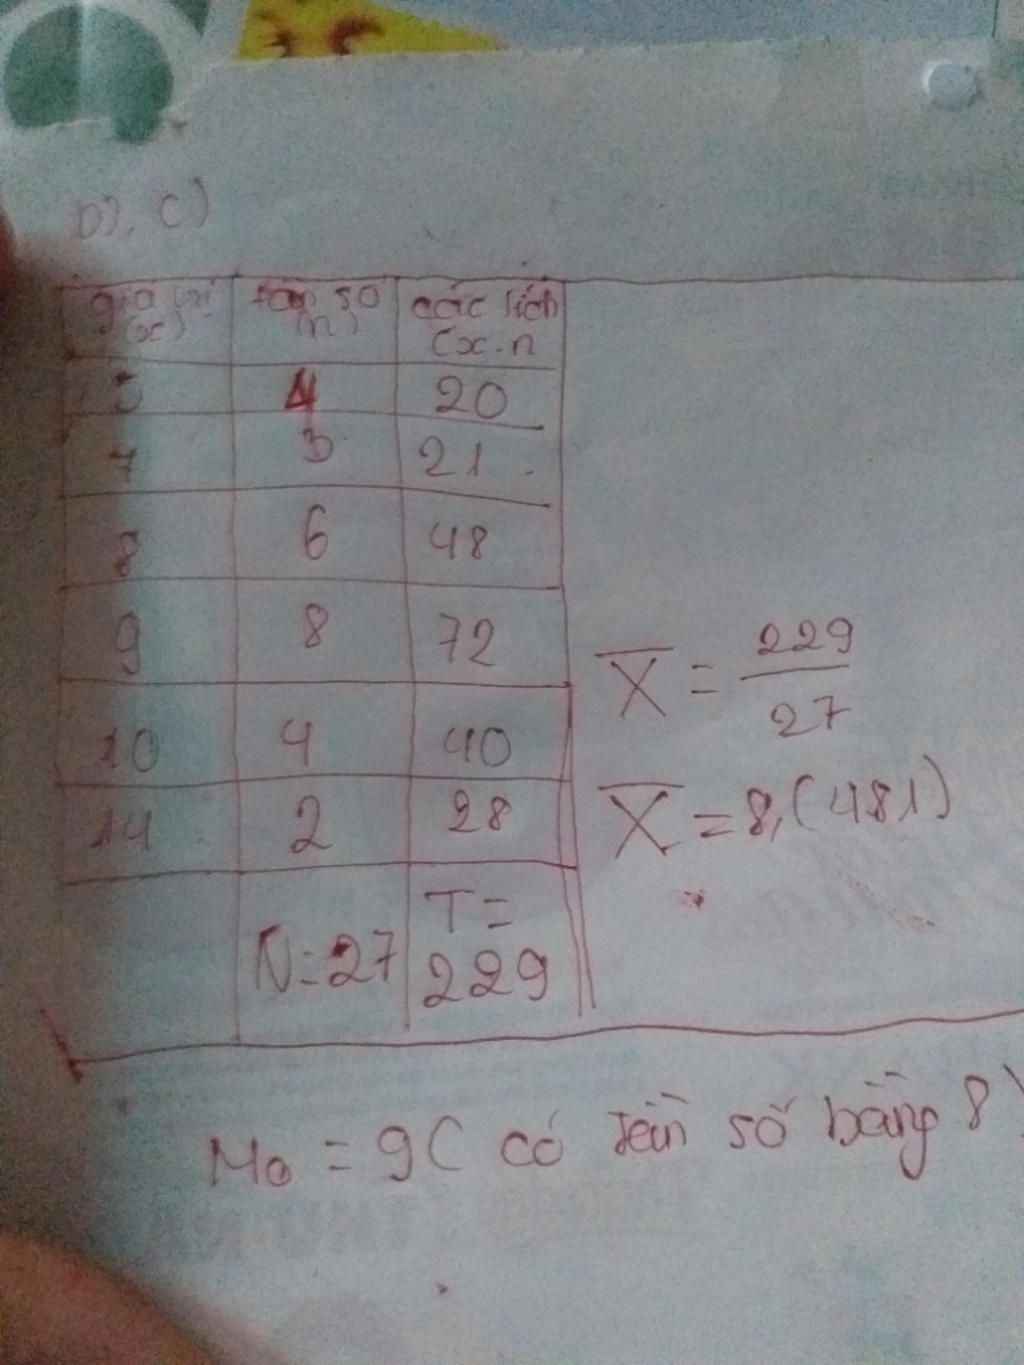 b), c)
giá trị (x) tần số (n) các tích (x.n
5 4 20
7 3 21
8 6 48
9 8 72
10 4 40
14 2 28
N=27 T= 229
X̄ = 229/27
X̄ = 8,(481)
Mo = 9( có tần số bằng 8)